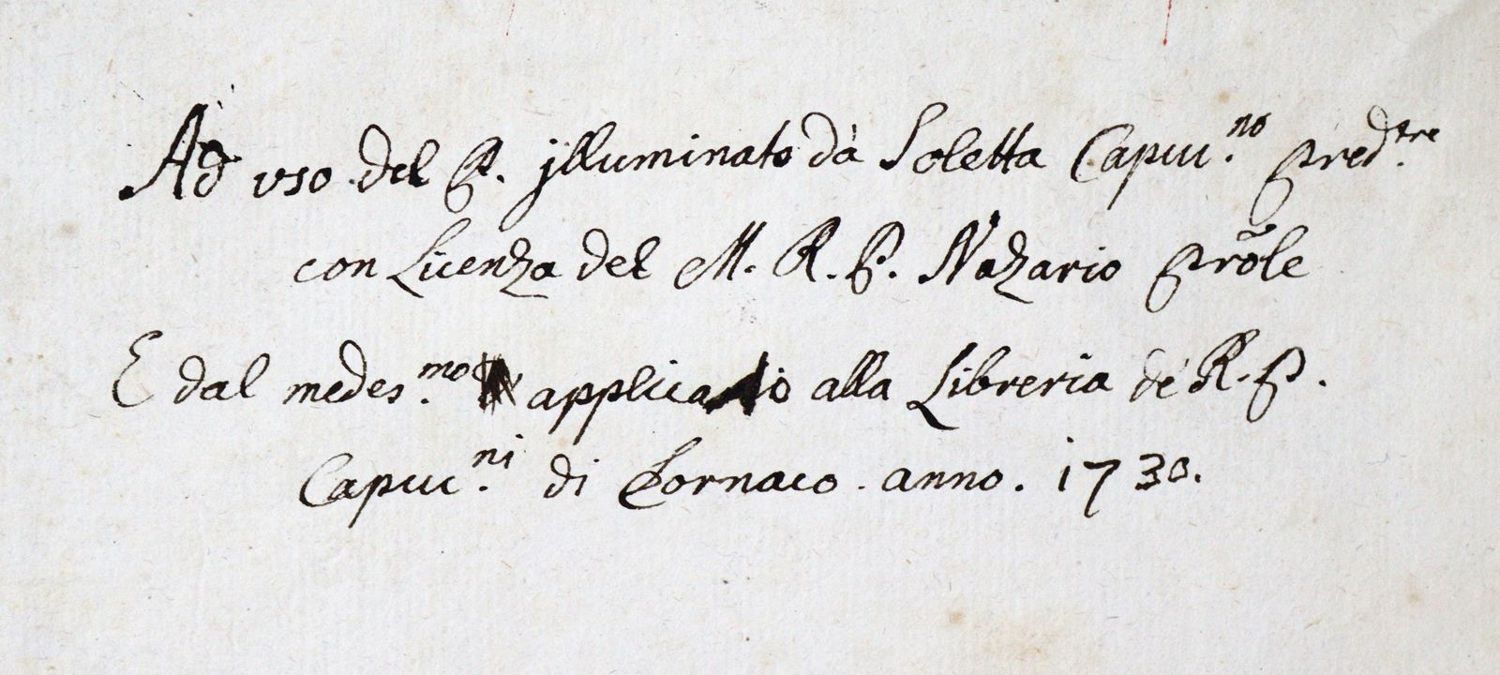 Ad uso del P. jlluminato dà Soletta Capuc.no Pred.tre
con Licenza del M. R. P. Nazario Prõle
E dal medes.mo applicato alla Libreria dè R. P.
Capuc.ni di Sornaco. anno. 1730.